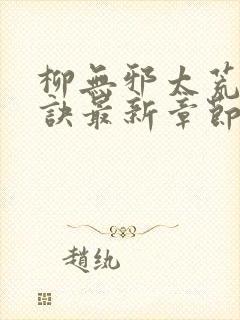 柳無邪太荒
訣最新章節
趙紈